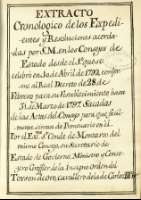 EXTRACTO
Cronologico de los Expedi-
entes y Resoluciones acorda-
das por S.M. en los Consejos de
Estado desde el 1º que se
celebró en 30 de Abril de 1792, conforme
al Real Decreto de 28 de
Febrero para su Restablecimiento hasta
31 de Marzo de 1797. Sacadas
de las Actas del Consejo para que sirviesen
Por el Exmo. Sr. Conde de Montarco del
mismo Consejo, su Secretario de
Estado de Govierno, Ministro y Conse-
jero de la Insigne Orden del
Toyson de oro, cavallero de la de Carlos